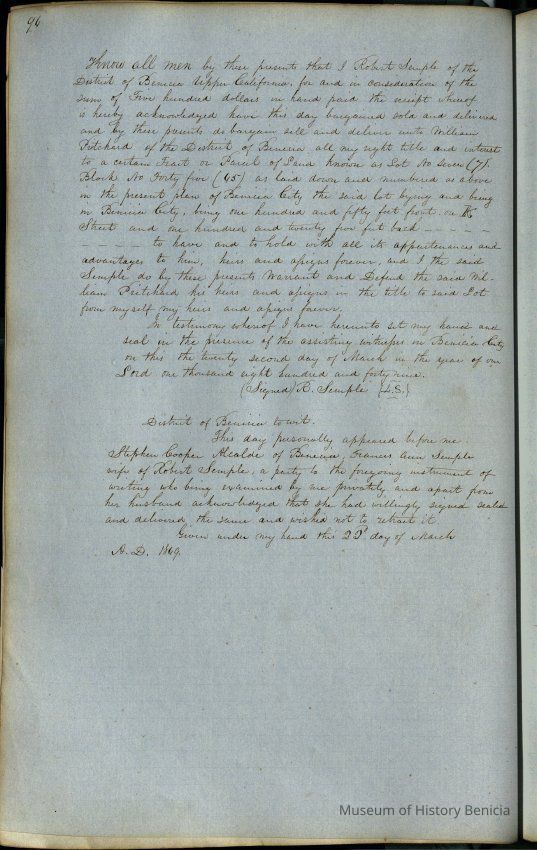 96
Know all men by these presents that I Robert Semple of the
District of Benicia Upper California, for and in consideration of the
sum of Five hundred dollars in hand paid the receipt whereof
is hereby acknowledged have this day bargained sold and delivered
and by these presents do bargain sell and deliver unto William
Pritchard of the District of Benicia all my right title and interest
to a certain Tract or Parcel of Land known as Lot No Seven (7)
Block No Forty five (45) as laid down and numbered as above
on the present plan of Benicia City the said lot lying and being
in Benicia City, being one hundred and fifty feet front on K
Street and one hundred and twenty five feet back - - - - -
- - - - - to have and to hold with all its appurtenances and
advantages to him, heirs and assigns forever, and I the said
Semple do by these presents Warrant and Defend the said Wil-
liam Pritchard his heirs and assigns in the title to said Lot
from myself my heirs and assigns forever.
In testimony whereof I have hereunto set my hand and
seal in the presence of the assisting witnesses in Benicia City
on this the twenty second day of March in the year of our
Lord one thousand eight hundred and forty nine.
(Signed) R. Semple {L.S.}
District of Benicia to wit.
This day personally appeared before me
Stephen Cooper Alcalde of Benicia, Frances Ann Semple
wife of Robert Semple, a party to the foregoing instrument of
writing who being examined by me privately and apart from
her husband acknowledged that she had willingly signed sealed
and delivered the same and wished not to retract it.
Given under my hand this 22d day of March
A.D. 1849.
Museum of History Benicia